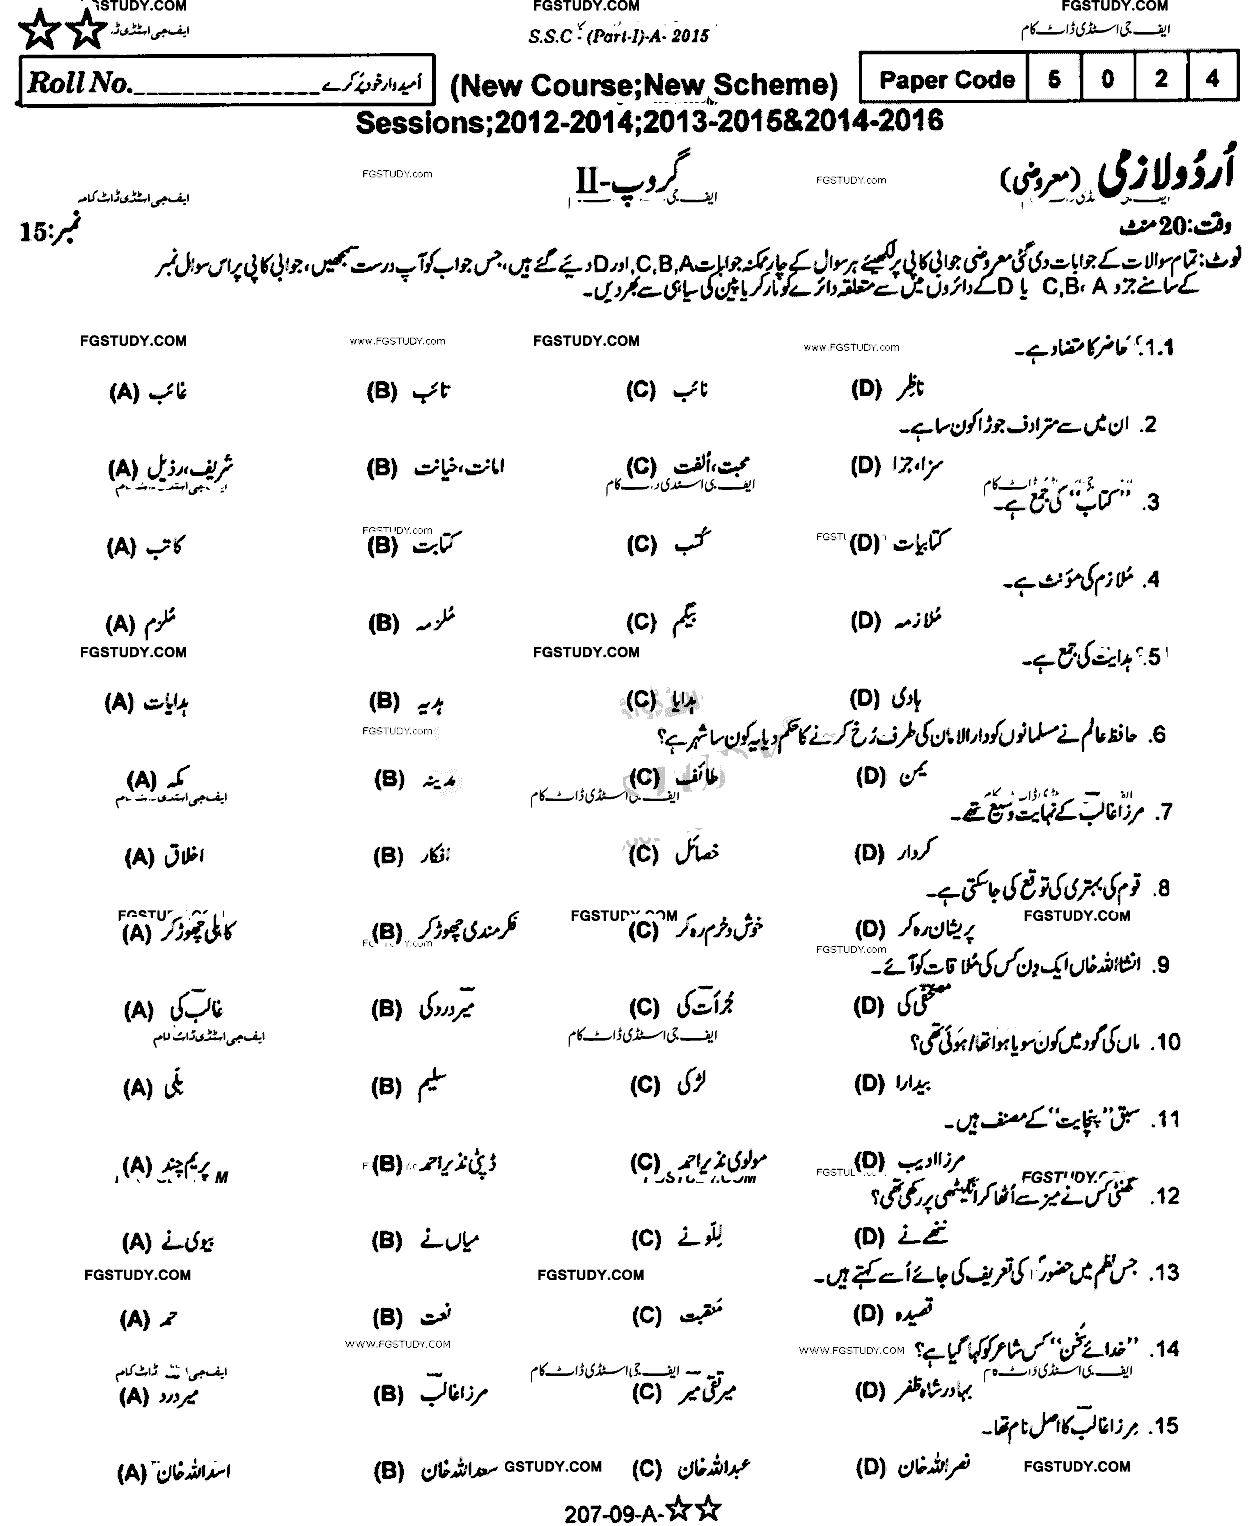 FGSTUDY.COM FGSTUDY.COM FGSTUDY.COM
ایف جی اسٹڈی ڈاٹ کام
S.S.C - (Part-I)-A- 2015
Roll No. امیدوار خود پُر کرے (New Course;New Scheme) Paper Code 5 0 2 4
Sessions;2012-2014;2013-2015&2014-2016
اُردُو لازمی (معروضی) FGSTUDY.com گروپ-II FGSTUDY.com
ایف جی اسٹڈی ڈاٹ کام
وقت:20 منٹ نمبر:15
نوٹ: تمام سوالات کے جوابات دی گئی معروضی جوابی کاپی پر لکھیئے ہر سوال کے چار ممکنہ جوابات C,B,A, اور D دیئے گئے ہیں، جس جواب کو آپ درست سمجھیں، جوابی کاپی پر اس سوال نمبر
کے سامنے جزو C,B، A یا D کے دائروں میں سے متعلقہ دائرے کو مارکر یا پین کی سیاہی سے بھر دیں۔
FGSTUDY.COM www.FGSTUDY.com FGSTUDY.COM www.FGSTUDY.com
1.1. حاضر کا متضاد ہے۔
(A) غائب (B) تائب (C) نائب (D) ناظِر
2. ان میں سے مترادف جوڑا کون سا ہے۔
(A) شریف،رذیل (B) امانت،خیانت (C) محبت،اُلفت (D) سزا،جزا
3. ”کتاب“ کی جمع ہے۔
(A) کاتب (B) کتابت (C) کُتب (D) کتابیات
4. مُلازم کی مؤنث ہے۔
(A) مُلزم (B) مُلزمہ (C) بیگم (D) مُلازمہ
FGSTUDY.COM FGSTUDY.COM
5. ہدایت کی جمع ہے۔
(A) ہدایات (B) ہدیہ (C) ہدایا (D) ہادی
6. حافظ عالم نے مسلمانوں کو دارالامان کی طرف رُخ کرنے کا حکم دیا یہ کون سا شہر ہے؟
FGSTUDY.com
(A) مکہ (B) مدینہ (C) طائف (D) یمن
ایف جی اسٹڈی ڈاٹ کام
7. مرزا غالب کے نہایت وسیع تھے۔
(A) اخلاق (B) افکار (C) خصائل (D) کردار
8. قوم کی بہتری کی توقع کی جا سکتی ہے۔
FGSTUDY.COM FGSTUDY.COM
(A) کاہلی چھوڑ کر (B) فکر مندی چھوڑ کر (C) خوش و خرم رہ کر (D) پریشان رہ کر
FGSTUDY.com
9. انشااللہ خاں ایک دِن کس کی مُلاقات کو آئے۔
(A) غالب کی (B) میر درد کی (C) جُرأت کی (D) مصحفی کی
ایف جی اسٹڈی ڈاٹ کام ایف جی اسٹڈی ڈاٹ کام
10. ماں کی گود میں کون سویا ہوا تھا/ہوئی تھی؟
(A) بلّی (B) سلیم (C) لڑکی (D) بیدارا
11. سبق ”پنچایت“ کے مصنف ہیں۔
(A) پریم چند (B) ڈپٹی نذیر احمد (C) مولوی نذیر احمد (D) مرزا ادیب
12. گھنٹی کس نے میز سے اُٹھا کر انگیٹھی پر رکھی تھی؟
(A) بیوی نے (B) میاں نے (C) بِلّو نے (D) ننھے نے
FGSTUDY.COM FGSTUDY.COM
13. جس نظم میں حضورؐ کی تعریف کی جائے اُسے کہتے ہیں۔
(A) حمد (B) نعت (C) مَنقبت (D) قصیدہ
WWW.FGSTUDY.COM WWW.FGSTUDY.COM
14. ”خدائے سُخن“ کس شاعر کو کہا گیا ہے؟
ایف جی اسٹڈی ڈاٹ کام
(A) میر درد (B) مرزا غالب (C) میر تقی میر (D) بہادر شاہ ظفر
15. مرزا غالب کا اصل نام تھا۔
(A) اسد اللہ خان (B) سعد اللہ خان (C) عبداللہ خان (D) نصر اللہ خان
GSTUDY.COM FGSTUDY.COM
207-09-A-☆☆